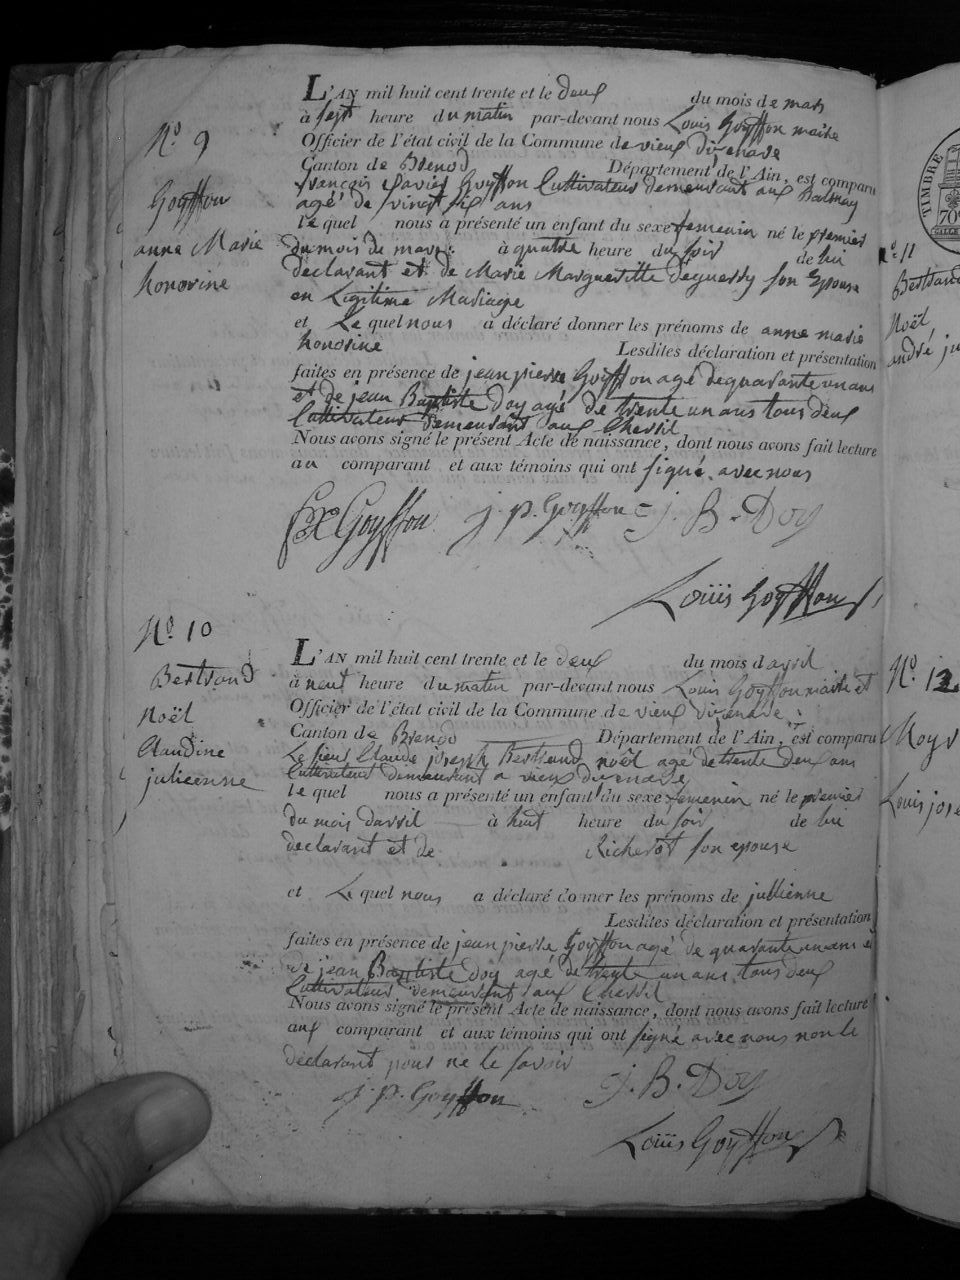 N.o 9
Goyffon
anne Marie
honorine
L'AN mil huit cent trente et le deux du mois de mars
à sept heure du matin par-devant nous Louis Goyffon maire
Officier de l'état civil de la Commune de vieux d'izenave
Canton de Brenod Département de l'Ain, est comparu
françois xavier Goyffon Cultivateur demeurant aux Balmay
agé de vingt six ans
le quel nous a présenté un enfant du sexe femenin né le premier
du mois de mars à quatre heure du soir de lui
declarant et de Marie Margueritte deguerry son Epouse
en Legitime Mariage
et Le quel nous a déclaré donner les prénoms de anne marie
honorine Lesdites déclaration et présentation
faites en présence de jean pierre Goyffon agé de quarante un ans
et de jean Baptiste Doy agé de trente un ans tous deux
Cultivateur demeurant aux Chevril
Nous avons signé le présent Acte de naissance, dont nous avons fait lecture
au comparant et aux témoins qui ont signé avec nous
fx Goyffon j. p. Goyffon j. B. Doy
Louis Goyffon
N.o 10
Bertrand
Noël
Claudine
julienne
L'AN mil huit cent trente et le deux du mois d avril
à neuf heure du matin par-devant nous Louis Goyffon maire et
Officier de l'état civil de la Commune de vieux d'izenave
Canton de Brenod Département de l'Ain, est comparu
Le sieur Claude joseph Bertrand noël agé de trente deux ans
Cultivateur demeurant a vieux d'izenave
le quel nous a présenté un enfant du sexe femenin né le premier
du mois d'avril à huit heure du soir de lui
declarant et de Richerot son epouse
et Le quel nous a déclaré donner les prénoms de jullienne
Lesdites déclaration et présentation
faites en présence de jean pierre Goyffon agé de quarante un ans et
de jean Baptiste doy agé de trente un ans tous deux
Cultivateur demeurant aux Chevril
Nous avons signé le présent Acte de naissance, dont nous avons fait lecture
aux comparant et aux témoins qui ont signé avec nous non le
déclarant pour ne le savoir
j. p. Goyffon j. B. Doy
Louis Goyffon
TIMBRE
N.o 11
Bertrand
Noël
andré
N.o 12